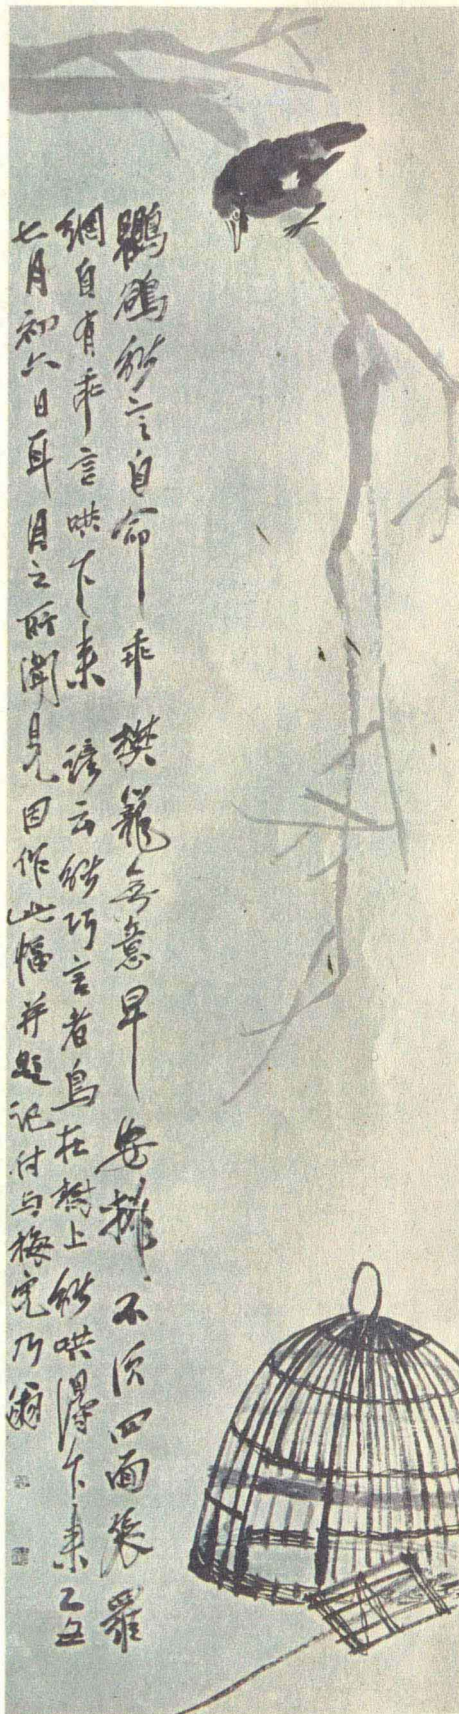 鸜鵒能言自命乖樊籠無意早安排不須四面張羅
網自有乖言哄下來 諺云能巧言者鳥在樹上能哄得下來乙丑
七月初六日耳目之所聞見因作此幅并題記付與梅兒乃翁